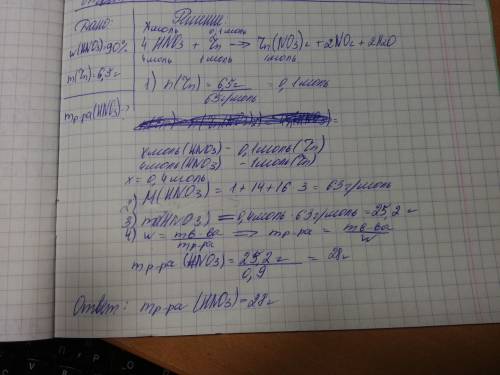 Дано:
w(HNO3)=90%
m(Zn)=6,5г
mр-ра(HNO3)-?
Решение:
x моль 0,1 моль
4HNO3 + Zn → Zn(NO3)2 + 2NO2 + 2H2O
4 моль 1 моль 1 моль
1) n(Zn) = 6,5г / 65г/моль = 0,1 моль
x моль (HNO3) - 0,1 моль (Zn)
4 моль (HNO3) - 1 моль (Zn)
x = 0,4 моль
2) M(HNO3) = 1+14+16·3 = 63г/моль
3) m(HNO3) = 0,4 моль·63г/моль = 25,2г
4) w = mв-ва / mр-ра ⇒ mр-ра = mв-ва / w
mр-ра (HNO3) = 25,2г / 0,9 = 28г
Ответ: mр-ра (HNO3) = 28г